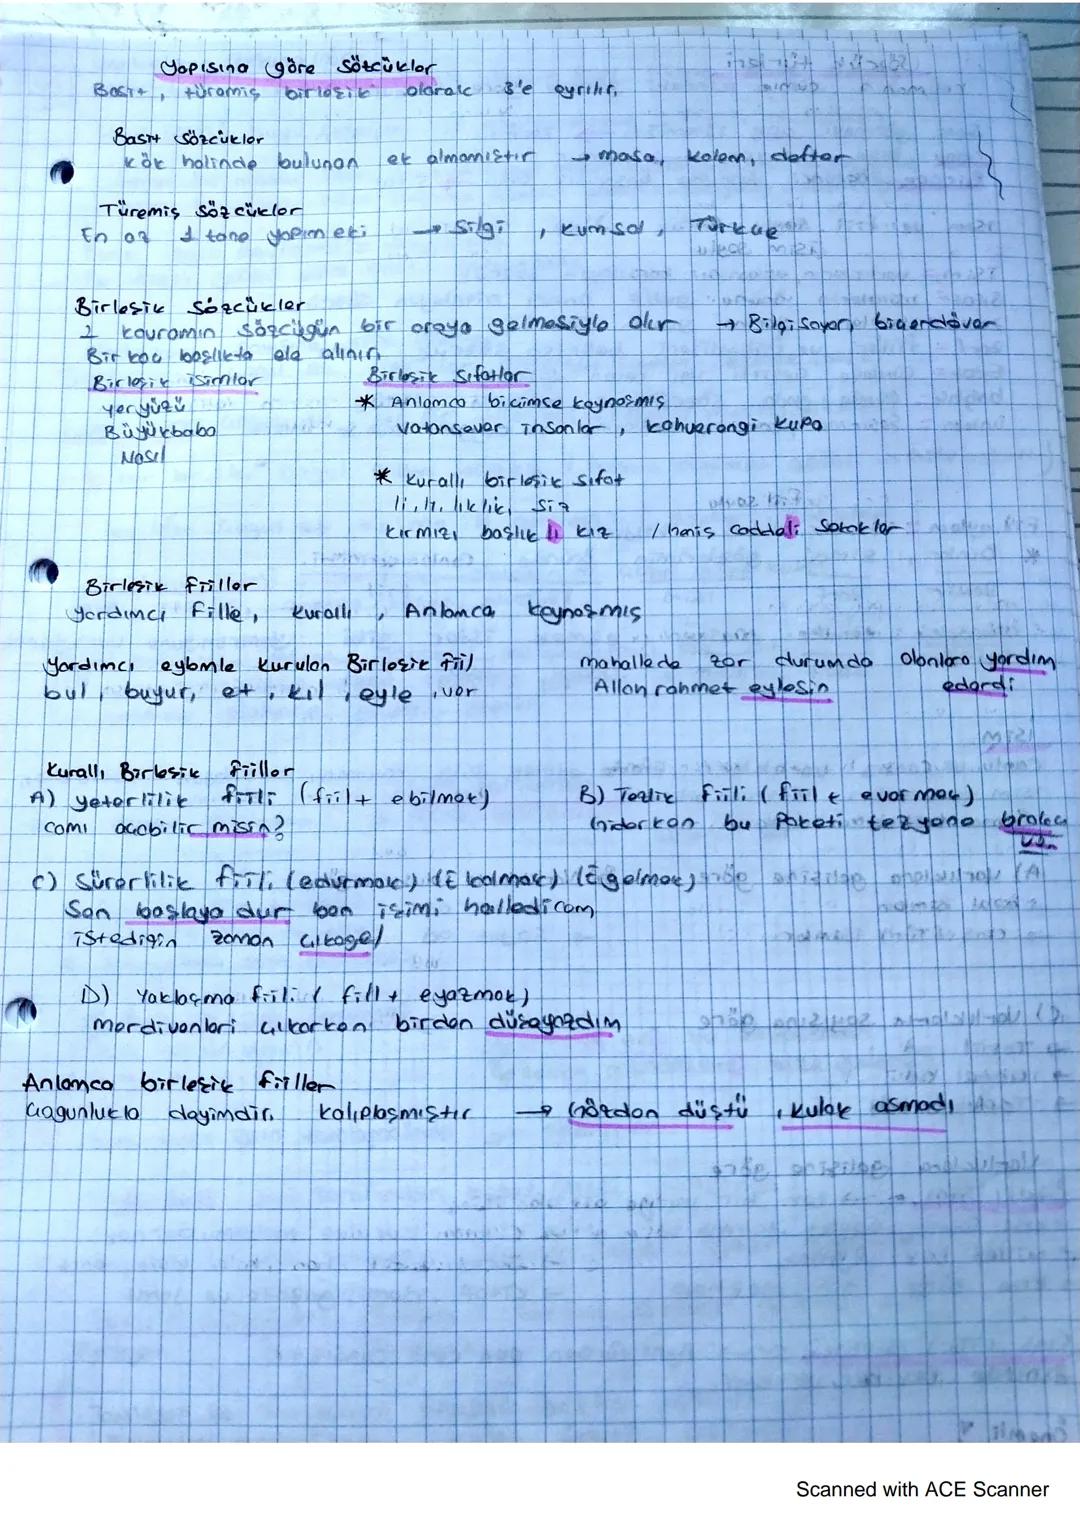 Yapısına göre Sözcükler
Basit, türemiş birleşik olarak 3'e ayrılır.
Basit Sözcükler
Kök halinde bulunan ek almamıştır → masa, kalem, defter
Türemiş Sözcükler
En az 1 tane yapım eki → Silgi, kumsal, Türkçe
Birleşik Sözcükler
2 kavramın sözcüğün bir araya gelmesiyle olur → Bilgisayar, biçerdöver
Bir kaç başlıkta ele alınır
Birleşik isimler
Yeryüzü
Büyükbaba
Nasıl
Birleşik Sıfatlar
* Anlamca biçimse kaynaşmış
vatansever insanlar, kahverengi kupa
* Kurallı birleşik sıfat
li, lı, lık lik, siz
Kırmızı başlıklı kız / Geniş caddeli Sokaklar
Birleşik fiiller
Yardımcı Fille, kurallı, Anlamca kaynaşmış
Yardımcı eylemle Kurulan Birleşik fiil
bul, buyur, et, kıl, eyle, ver
mahallede zor durumda olanlara yardım ederdi
Allah rahmet eylesin
Kurallı Birleşik fiiller
A) yeterlilik fiili (fiil + ebilmek)
camı açabilir misin?
B) Tezlik fiili (fiil + evermek)
Giderken bu paketi tezyene
C) Sürerlilik fiili (edurmak) (E kalmak) (E gelmek)
Sen başlaya dur ben işimi halledicem
istediğin zaman çıkagel
D) Yaklaşma fiili (fiil + eyazmak)
merdivenleri çıkarken birden düşeyazdım
Anlamca birleşik fiiller
Çoğunlukla deyimdir, kalıplaşmıştır → Gözden düştü, kulak asmadı
Scanned with ACE Scanner